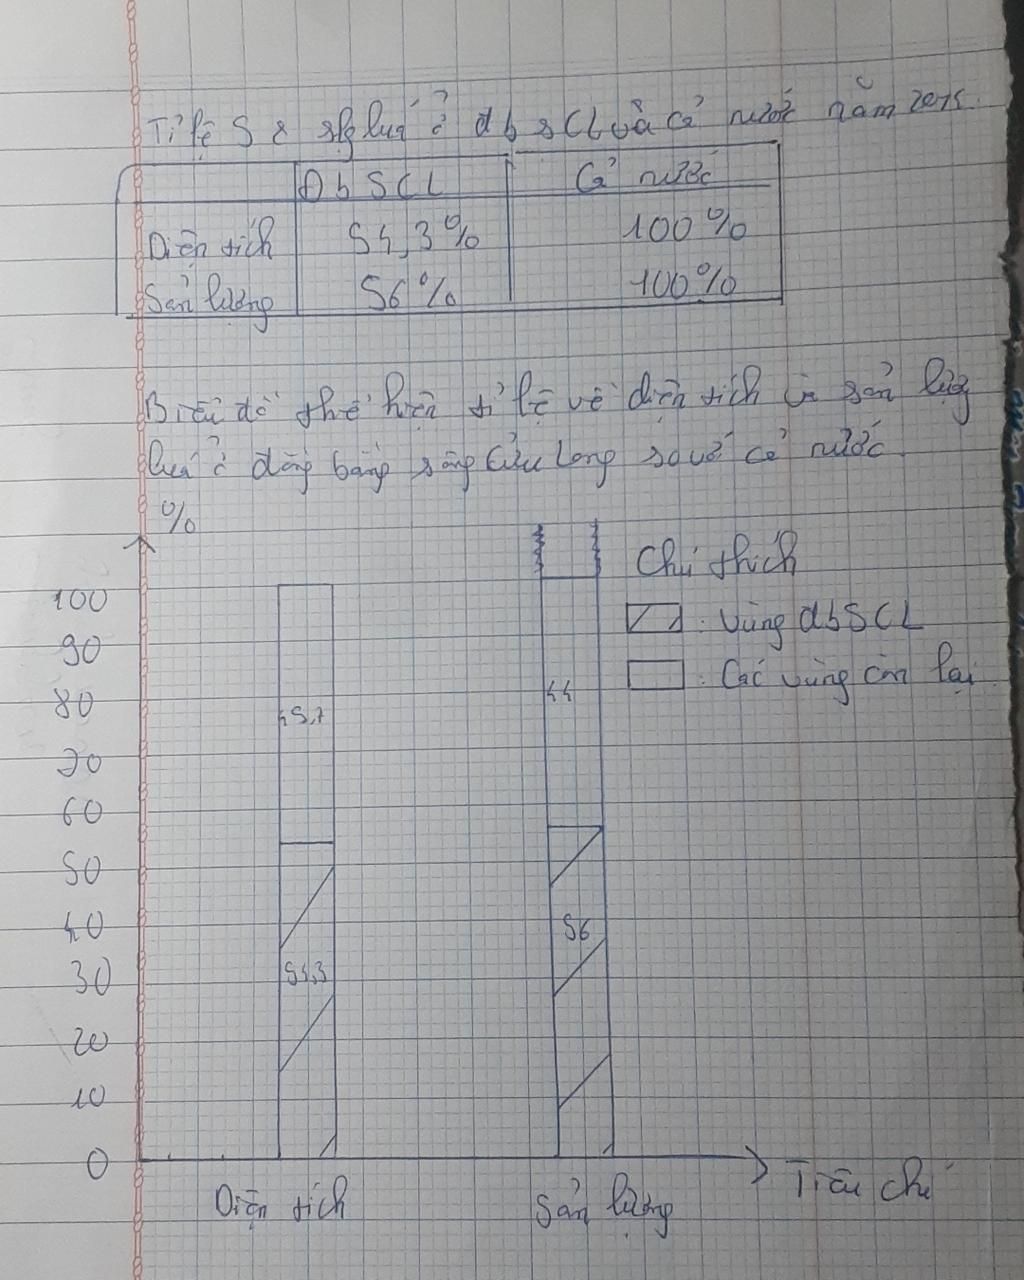 Tỉ lệ S & slg lúa ở đb sCL và cả nước năm 2015
Đb SCL Cả nước
Diện tích 54,3% 100%
Sản lượng 56% 100%
Biểu đồ thể hiện tỉ lệ về diện tích và sản lượng
lúa ở đồng bằng sông Cửu Long so với cả nước
%
Chú thích
100
: Vùng đbSCL
90
: Các vùng còn lại
80
44
45,7
70
60
50
40
56
30
54,3
20
10
0
Tiêu chí
Diện tích Sản lượng